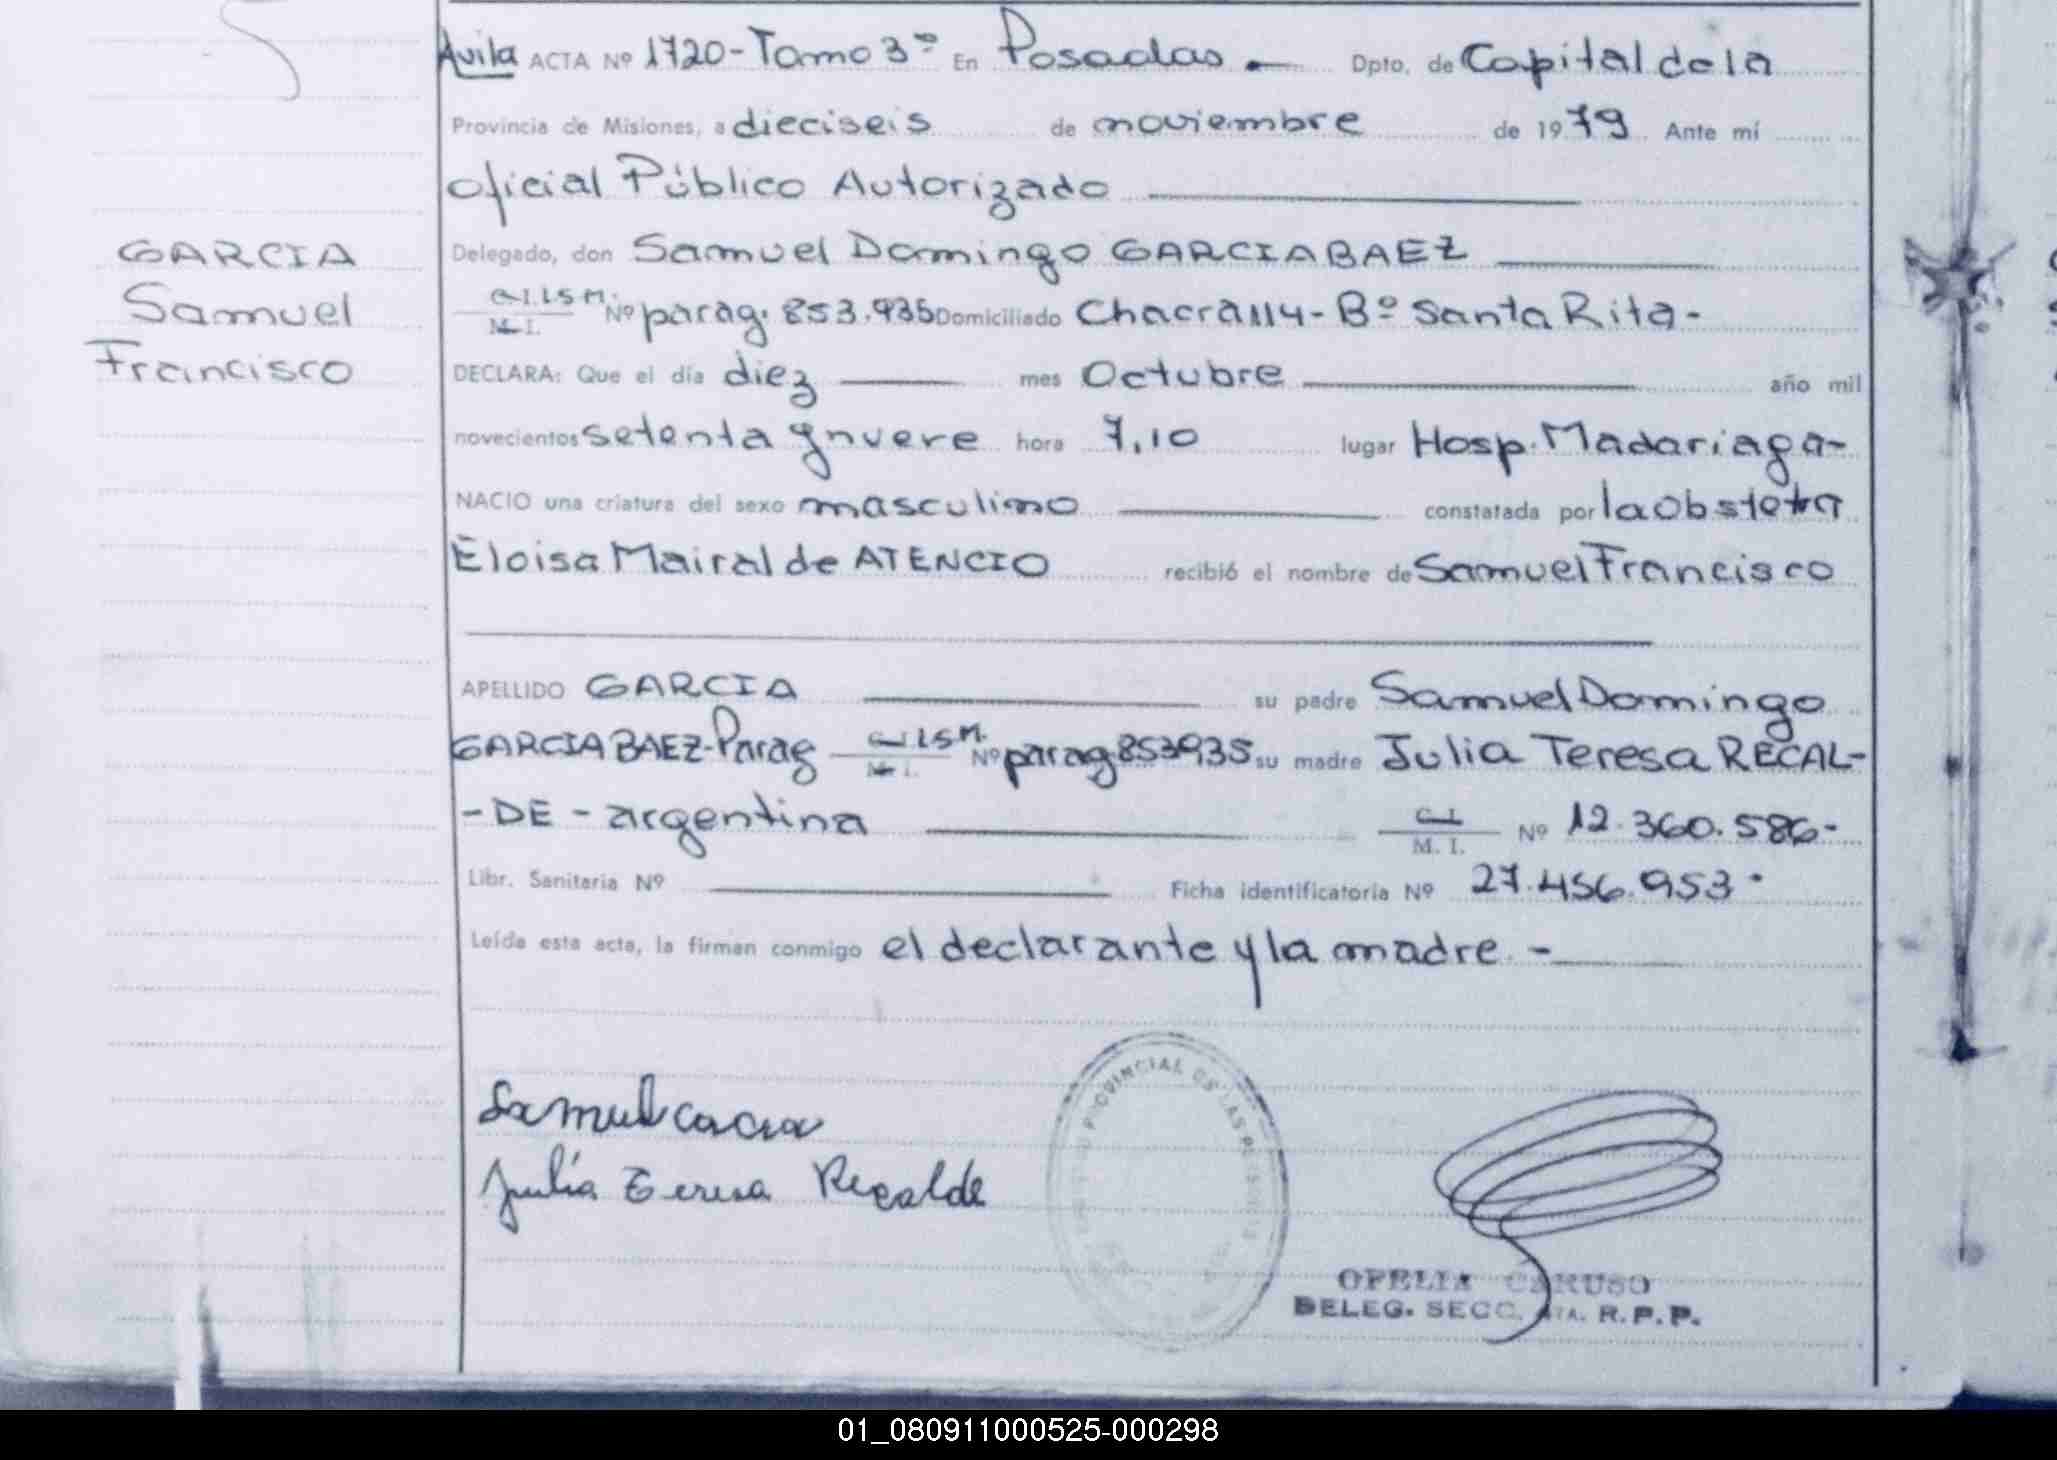 Avila ACTA Nº 1720-Tomo 3º En Posadas.- Dpto. de Capital de la
Provincia de Misiones, a dieciseis de noviembre de 1979 Ante mí
oficial Público Autorizado
Delegado, don Samuel Domingo GARCIA BAEZ
C.I. I.S.M. / M.I. Nº parag. 853.935 Domiciliado Chacra 114-Bº Santa Rita-
DECLARA: Que el día diez mes Octubre año mil
novecientos setenta y nueve hora 7,10 lugar Hosp. Madariaga-
NACIO una criatura del sexo masculino constatada por la Obstetra
Eloisa Mairal de ATENCIO recibió el nombre de Samuel Francisco
APELLIDO GARCIA su padre Samuel Domingo
GARCIA BAEZ-Parag C.I. I.S.M. / M.I. Nº parag 853935 su madre Julia Teresa RECAL-
-DE - argentina C.I. / M. I. Nº 12.360.586-
Libr. Sanitaria Nº Ficha identificatoria Nº 27.456.953.
Leída esta acta, la firman conmigo el declarante y la madre.-
GARCIA
Samuel
Francisco
Samuel Garcia
Julia Teresa Recalde
PROVINCIAL DE LAS PERSONAS
OFELIA CARUSO
DELEG. SECC. 4TA. R.P.P.
01_080911000525-000298